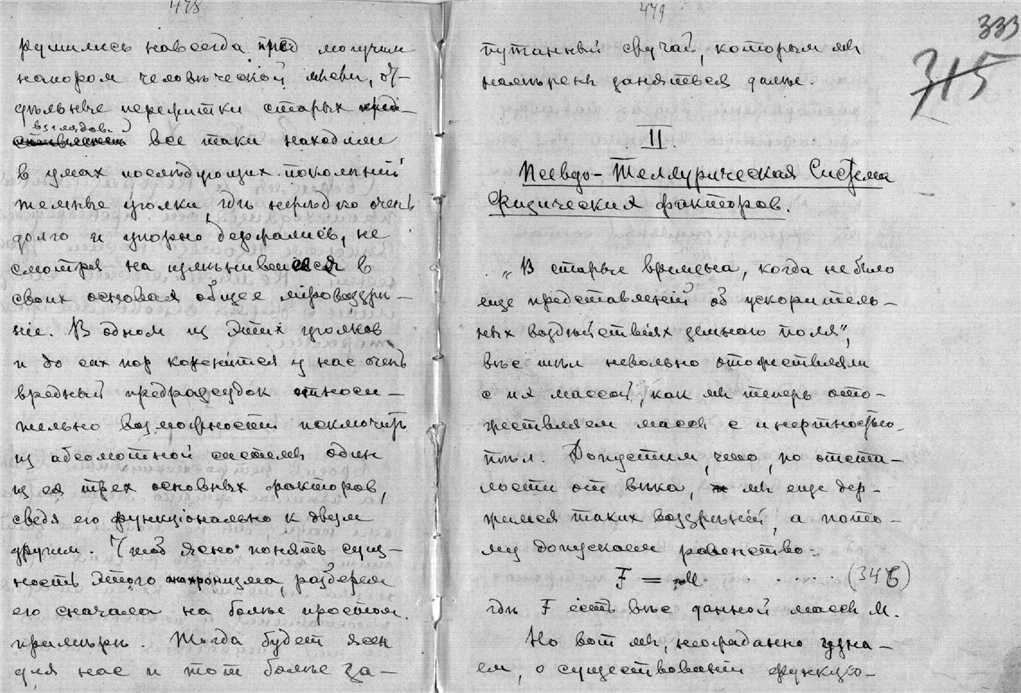 478
рушились навсегда пред могучим
напором человѣческой мысли, от-
дѣльные пережитки старых
взглядов все таки находили
в умах послѣдующих поколѣний
темные уголки, гдѣ нерѣдко очень
долго и упорно держались, не
смотря на измѣнившееся в
своих основах общее мировоззрѣ-
ние. В одном из этих уголков
и до сих пор коренится у нас очень
вредный предразсудок относи-
тельно возможности исключить
из абсолютной системы один
из ея трех основных факторов,
сведя его функціонально к двум
другим. Чтоб ясно понять сущ-
ность этого анахронизма, разберем
его сначала на болѣе простом
примѣрѣ. Тогда будет ясен
для нас и тот болѣе за-
479
333
315
путанный случай, которым мы
намѣрены заняться далѣе.
II
Псевдо-Теллурическая Система
Физических факторов.
„В старые времена, когда не было
еще представлений об ускоритель-
ных воздѣйствиях земного поля",
вѣс тѣл невольно отожествляли
с их массой, как мы теперь ото-
жествляем массы с инертностью
тѣл. Допустим, что, по отста-
лости от вѣка, мы еще дер-
жимся таких воззрѣний, а пото-
му допускаем равенство:
F = M . . . . . . (346)
гдѣ F есть вѣс данной массы M.
Но вот мы, неожиданно узна-
ем, о существовании функцио-